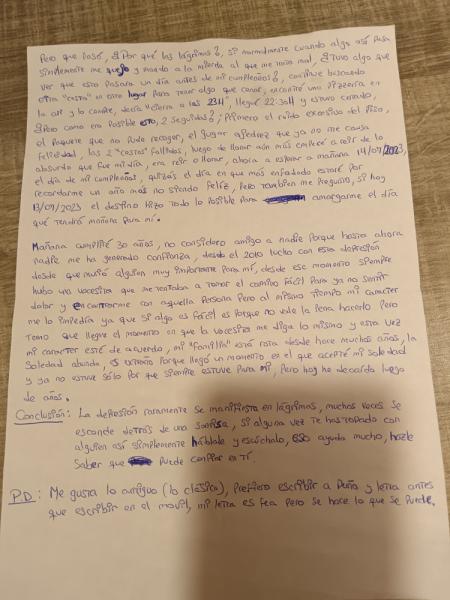 Pero que Pasó, ¿Por qué las lágrimas?, si normalmente cuando algo así Pasa
simplemente me quejo y mando a la mierda al que me toca mal, ¿Tuvo algo que
ver que esto Pasara un día antes de mi cumpleaños?, continue buscando
otra "costra" en otro lugar Para tener algo que cenar, encontré una Pizzería en
la app y lo confíe, decía "cierra a las 23H", llegué 22:30H y estuvo cerrado,
¿Pero como era Posible esto, 2 seguidos?; Primero el ruido excesivo del Piso,
el Paquete que no Pude recoger, el Jugar ajedrez que ya no me causa
felicidad, las 2 fallidos, luego de llorar aún más empecé a reír de lo
absurdo que fue mi día, era reír o llorar, ahora a esperar a mañana 14/07/2023,
el día de mi cumpleaños, quizás el día en que más enfadado estaré Por
recordarme un año más no siendo feliz, Pero también me Pregunto, si hoy
13/07/2023 el destino hizo todo lo Posible Para amargarme el día
qué tendrá mañana Para mí.
Mañana cumpliré 30 años, no considero amigo a nadie Porque hasta ahora
nadie me ha generado confianza, desde el 2010 lucho con esta depresión
desde que murió alguien muy importante Para mí, desde ese momento siempre
hubo una vocesita que me tentaba a tomar el camino fácil Para ya no sentir
dolor y encontrarme con aquella Persona Pero al mismo tiempo mi caracter
me lo impedía ya que si algo es fácil es Porque no vale la Pena hacerlo Pero
Temo que llegue el momento en que la vocesita me diga lo mismo y esta vez
mi caracter esté de acuerdo, mi "familia" está rota desde hace muchos años, la
Soledad abunda, es extraño Porque llegó un momento en el que acepté mi Soledad
y ya no estuve sólo Por que siempre estuve Para mí, Pero hoy he decaído luego
de años.
Conclusión: La depresión raramente se manifiesta en lágrimas, muchas veces se
esconde detrás de una sonrisa, si alguna vez te has topado con
alguien así simplemente háblale y escúchalo, eso ayuda mucho, hazle
Saber que Puede confiar en tí.
PD: Me gusta lo antiguo (lo clásico), Prefiero escribir a Puño y letra antes
que escribir en el movil, mi letra es fea Pero se hace lo que se Puede.